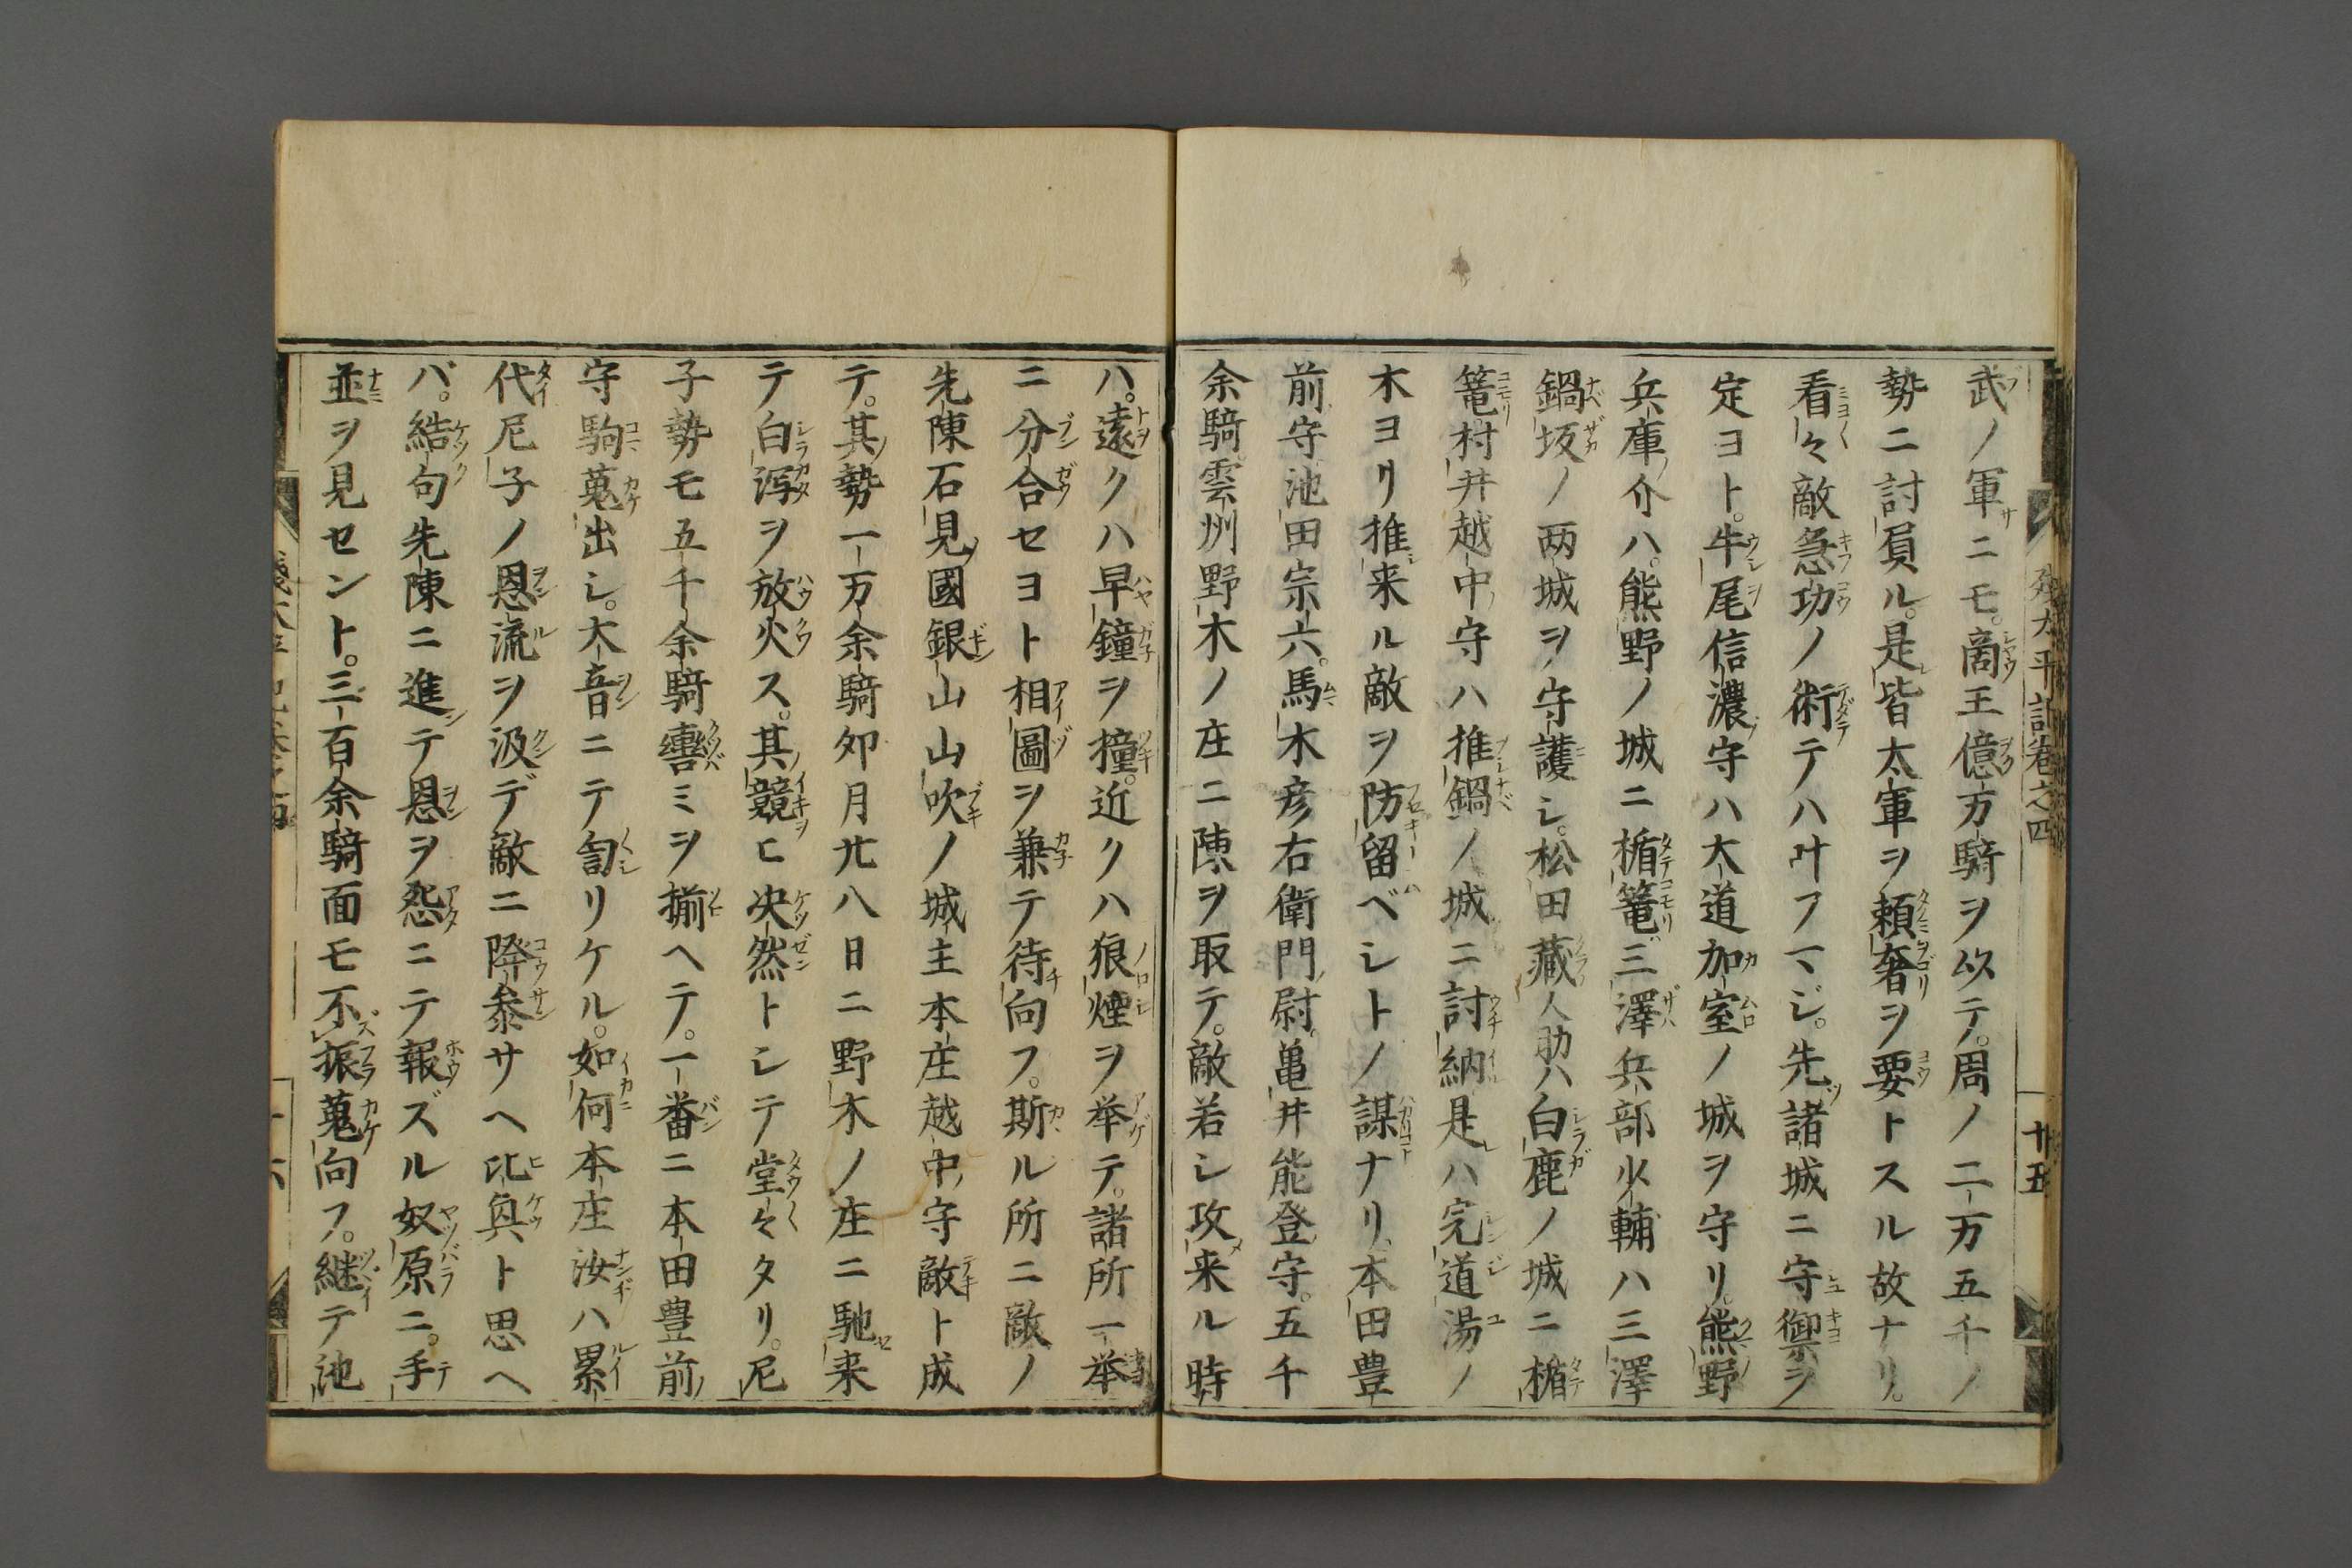 武ノ軍ニモ。商王億万騎ヲ以テ。周ノ二万五千ノ
勢ニ討負ル。是皆太軍ヲ頼奢ヲ要トスル故ナリ。
看々敵急功ノ術テハ叶フマジ。先諸城ニ守禦ヲ
定ヨト。牛尾信濃守ハ大道加室ノ城ヲ守リ。熊野
兵庫介ハ。熊野ノ城ニ楯篭。三澤兵部少輔ハ三澤
鍋坂ノ両城ヲ守護シ。松田蔵人助ハ白鹿ノ城ニ楯
篭。村井越中守ハ推鍋ノ城ニ討納。是ハ完道湯ノ
木ヨリ推来ル敵ヲ防留ベシトノ謀ナリ。本田豊
前守池田宗六。馬木彦右衛門尉。亀井能登守。五千
余騎雲州野木ノ庄ニ陳ヲ取テ。敵若シ攻来ル時
ハ。遠クハ早鐘ヲ撞。近クハ狼煙ヲ举テ。諸所一举
ニ分合セヨト相圖ヲ兼テ待向フ。斯ル所ニ敵ノ
先陳石見國銀山山吹ノ城主本庄越中守敵ト成
テ。其勢一万余騎卯月廿八日ニ野木ノ庄ニ馳来
テ白潟ヲ放火ス。其競ヒ决然トシテ堂々タリ。尼
子勢モ五千余騎轡ミヲ揃ヘテ。一番ニ本田豊前
守駒蒐出シ。大音ニテ訇リケル。如何本庄汝ハ累
代尼子ノ恩流ヲ汲デ敵ニ降参サヘ比興ト思ヘ
バ。結句先陳ニ進テ恩ヲ怨ニテ報ズル奴原ニ。手
並ヲ見セント。三百余騎面モ不振蒐向フ。継テ池
残太平記卷之四
廿五